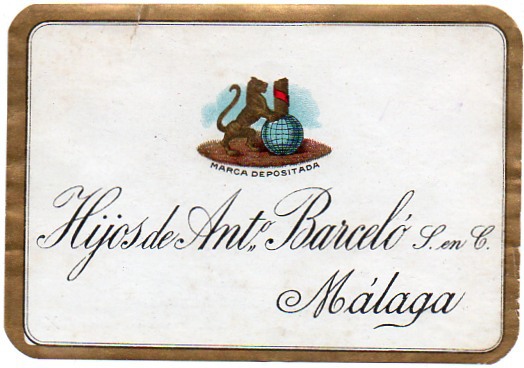 MARCA DEPOSITADA
Hijos de Ant.º Barceló S. en C.
Málaga